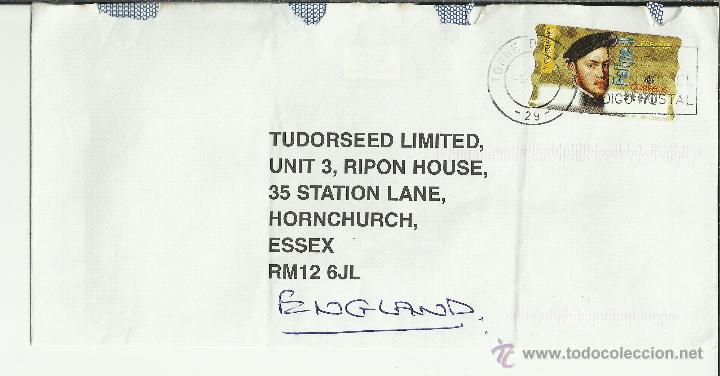 TORRE
29
CODIGO POSTAL
ESPAÑA
Felipe II
CORREOS
TUDORSEED LIMITED,
UNIT 3, RIPON HOUSE,
35 STATION LANE,
HORNCHURCH,
ESSEX
RM12 6JL
ENGLAND.
www.todocoleccion.net